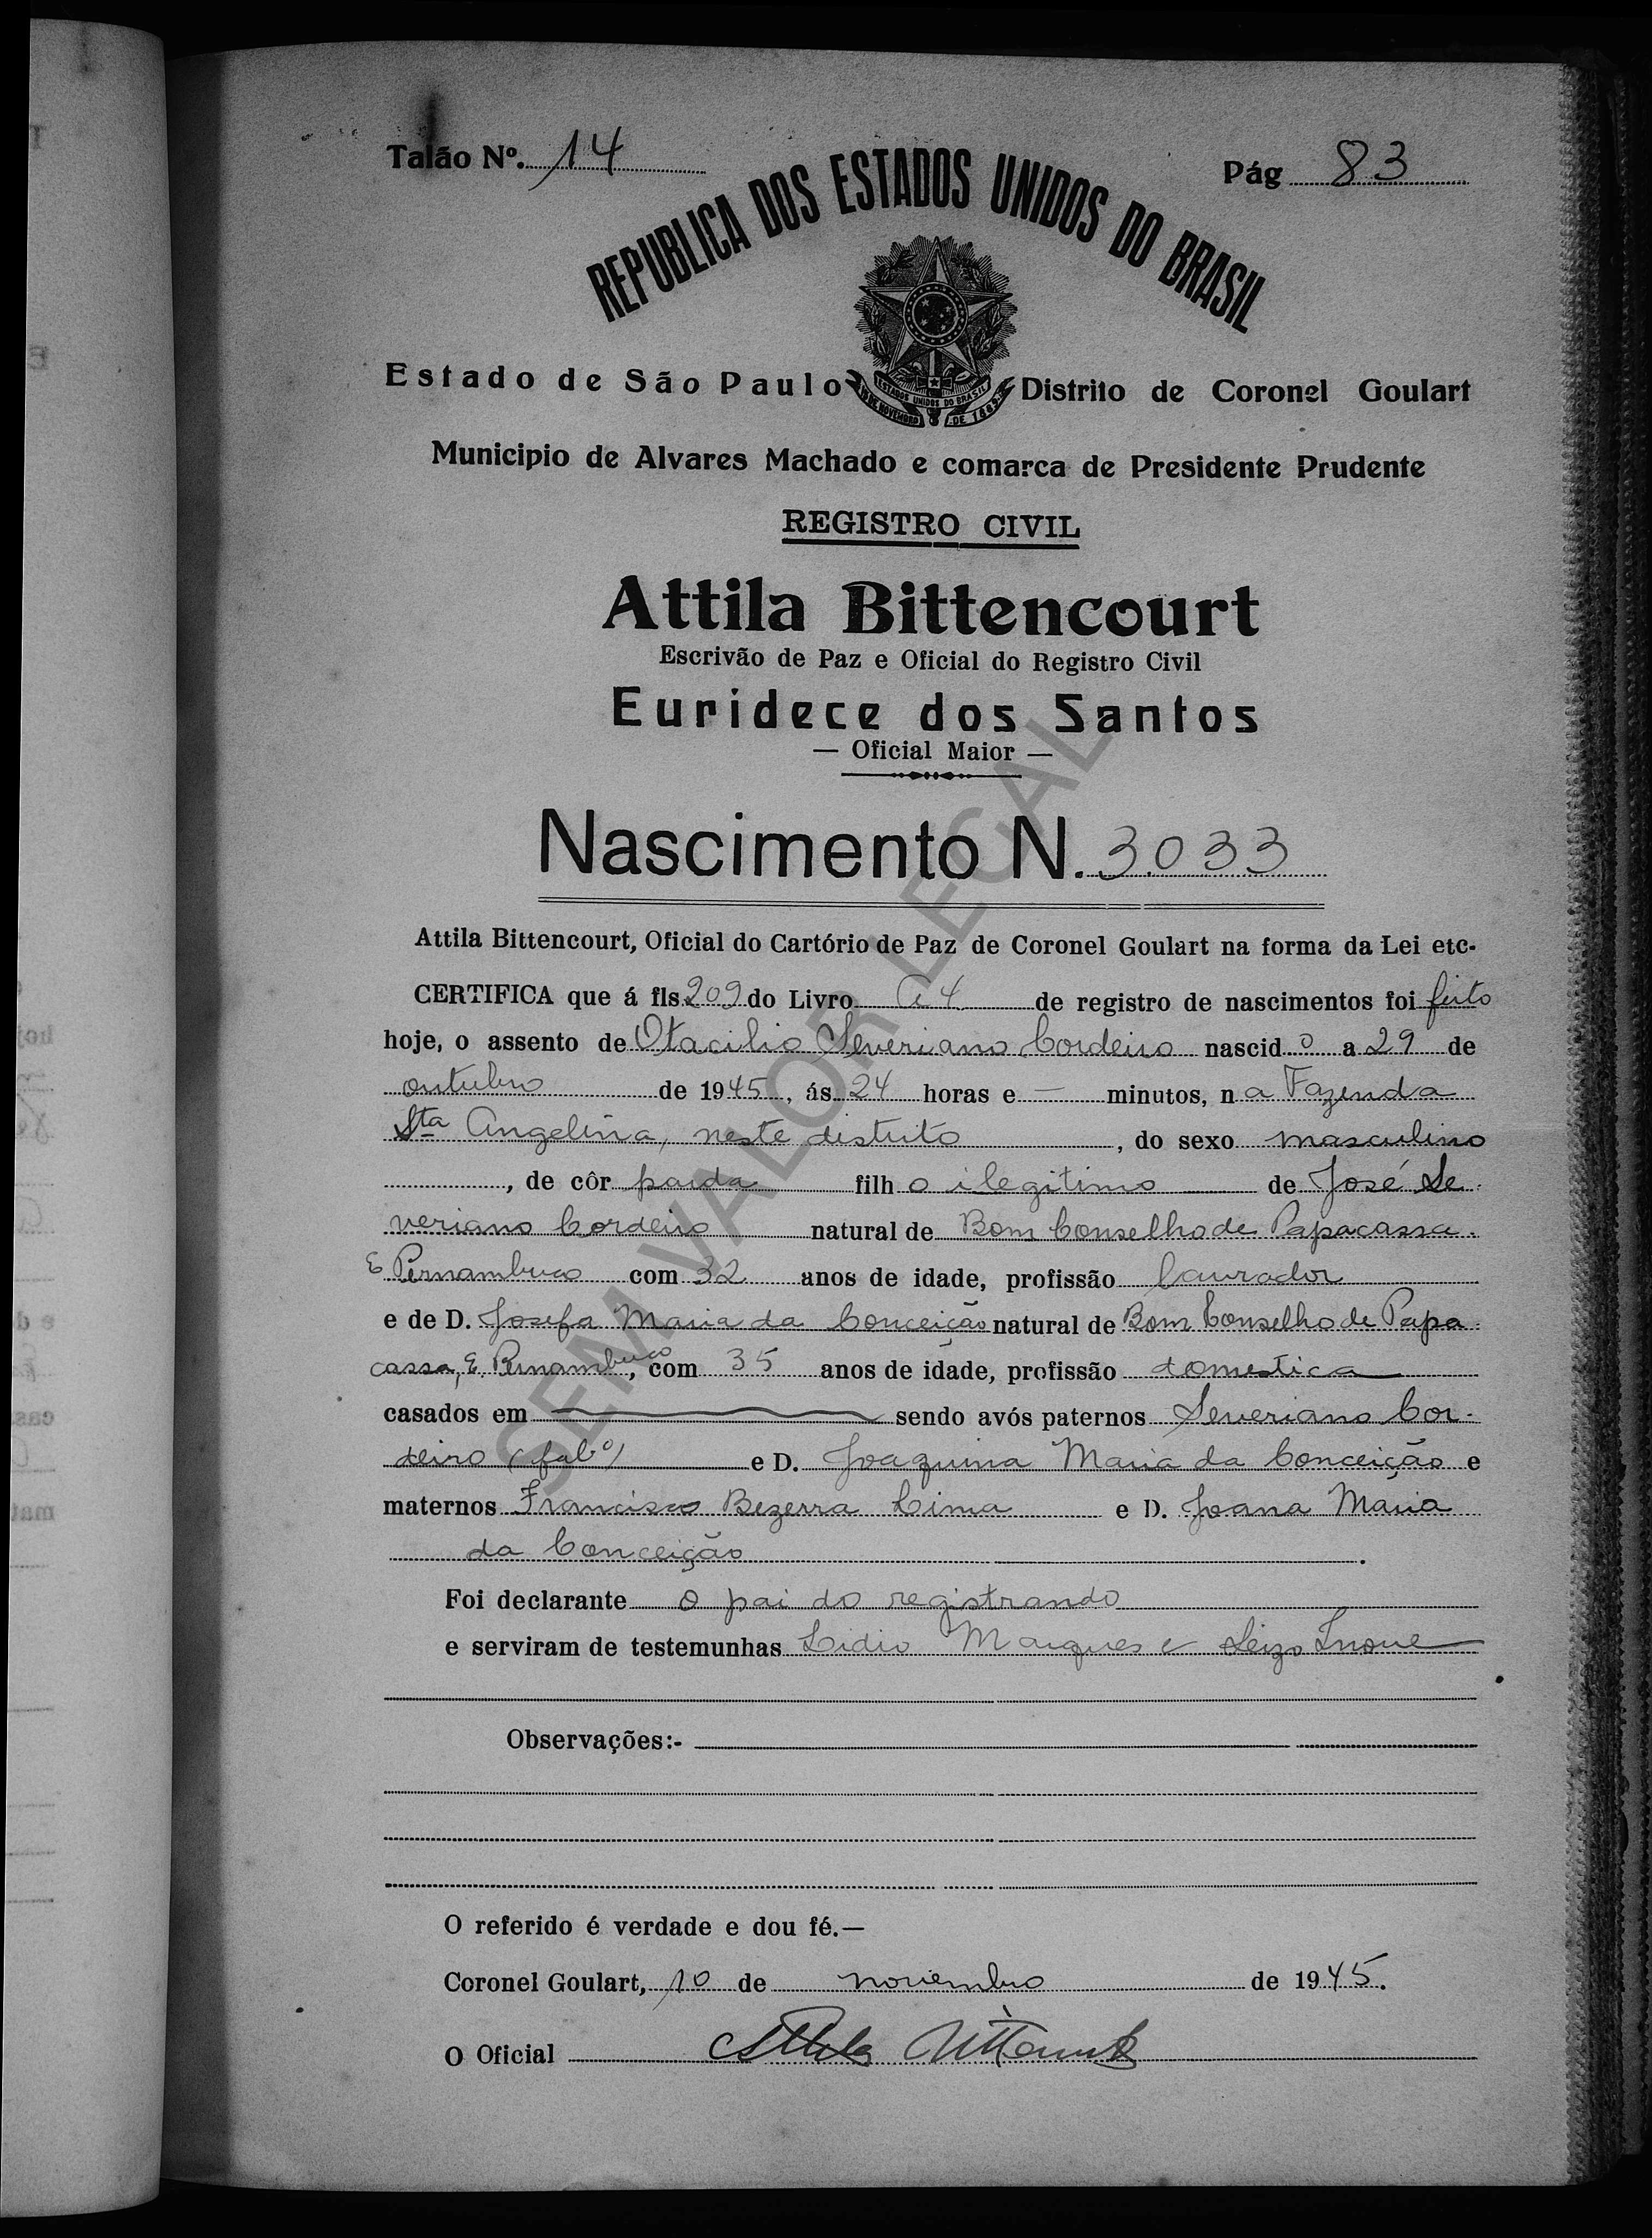 Talão Nº. 14
Pág 83
REPUBLICA DOS ESTADOS UNIDOS DO BRASIL
ESTADOS UNIDOS DO BRASIL
15 DE NOVEMBRO DE 1889
Estado de São Paulo Distrito de Coronel Goulart
Municipio de Alvares Machado e comarca de Presidente Prudente
REGISTRO CIVIL
Attila Bittencourt
Escrivão de Paz e Oficial do Registro Civil
Euridece dos Santos
— Oficial Maior —
Nascimento N. 3033
Attila Bittencourt, Oficial do Cartório de Paz de Coronel Goulart na forma da Lei etc.
CERTIFICA que á fls. 209 do Livro A 4 de registro de nascimentos foi feito
hoje, o assento de Otacilio Severiano Cordeiro nascid o a 29 de
outubro de 1945, ás 24 horas e — minutos, n a Fazenda
Sta Angelina, neste distrito, do sexo masculino
, de côr parda filh o ilegitimo de José Se
veriano Cordeiro natural de Bom Conselho de Papacassa.
E Pernambuco com 32 anos de idade, profissão lavrador
e de D. Josefa Maria da Conceição natural de Bom Conselho de Papa
cassa, E. Pernambuco, com 35 anos de idade, profissão domestica
casados em — sendo avós paternos Severiano Cor-
deiro (falº) e D. Joaquina Maria da Conceição e
maternos Francisco Bezerra Lima e D. Joana Maria
da Conceição.
Foi declarante o pai do registrando
e serviram de testemunhas Lidio Marques e Seizo Inoue
Observações:-
O referido é verdade e dou fé.—
Coronel Goulart, 10 de novembro de 1945.
O Oficial Attila Bittencourt
SEM VALOR LEGAL